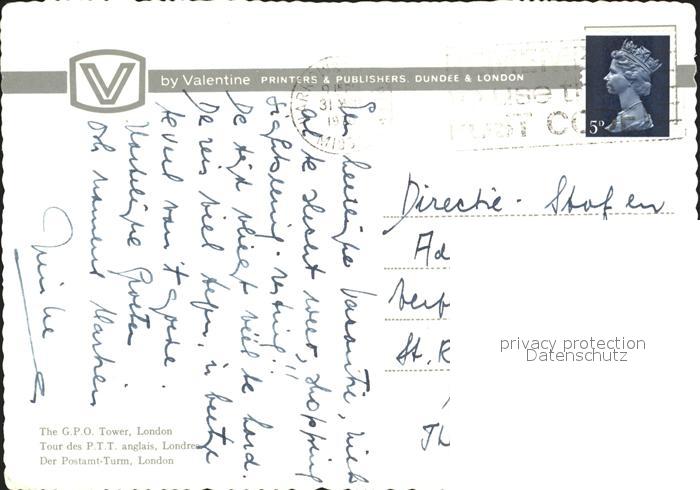 by Valentine PRINTERS & PUBLISHERS, DUNDEE & LONDON
5ᴰ
Een heerlijke vacantie, niet
al te slecht weer, shopping
sightseeing resting!!
De tijd vliegt veel te hard.
De reis viel tegen, 'n beetje
teveel van 't goede.
Hartelijke Groeten
ook namens
Directie - Staf en
Ad
Verp
St. R
Th
privacy protection
Datenschutz
The G.P.O. Tower, London
Tour des P.T.T. anglais, Londres
Der Postamt-Turm, London